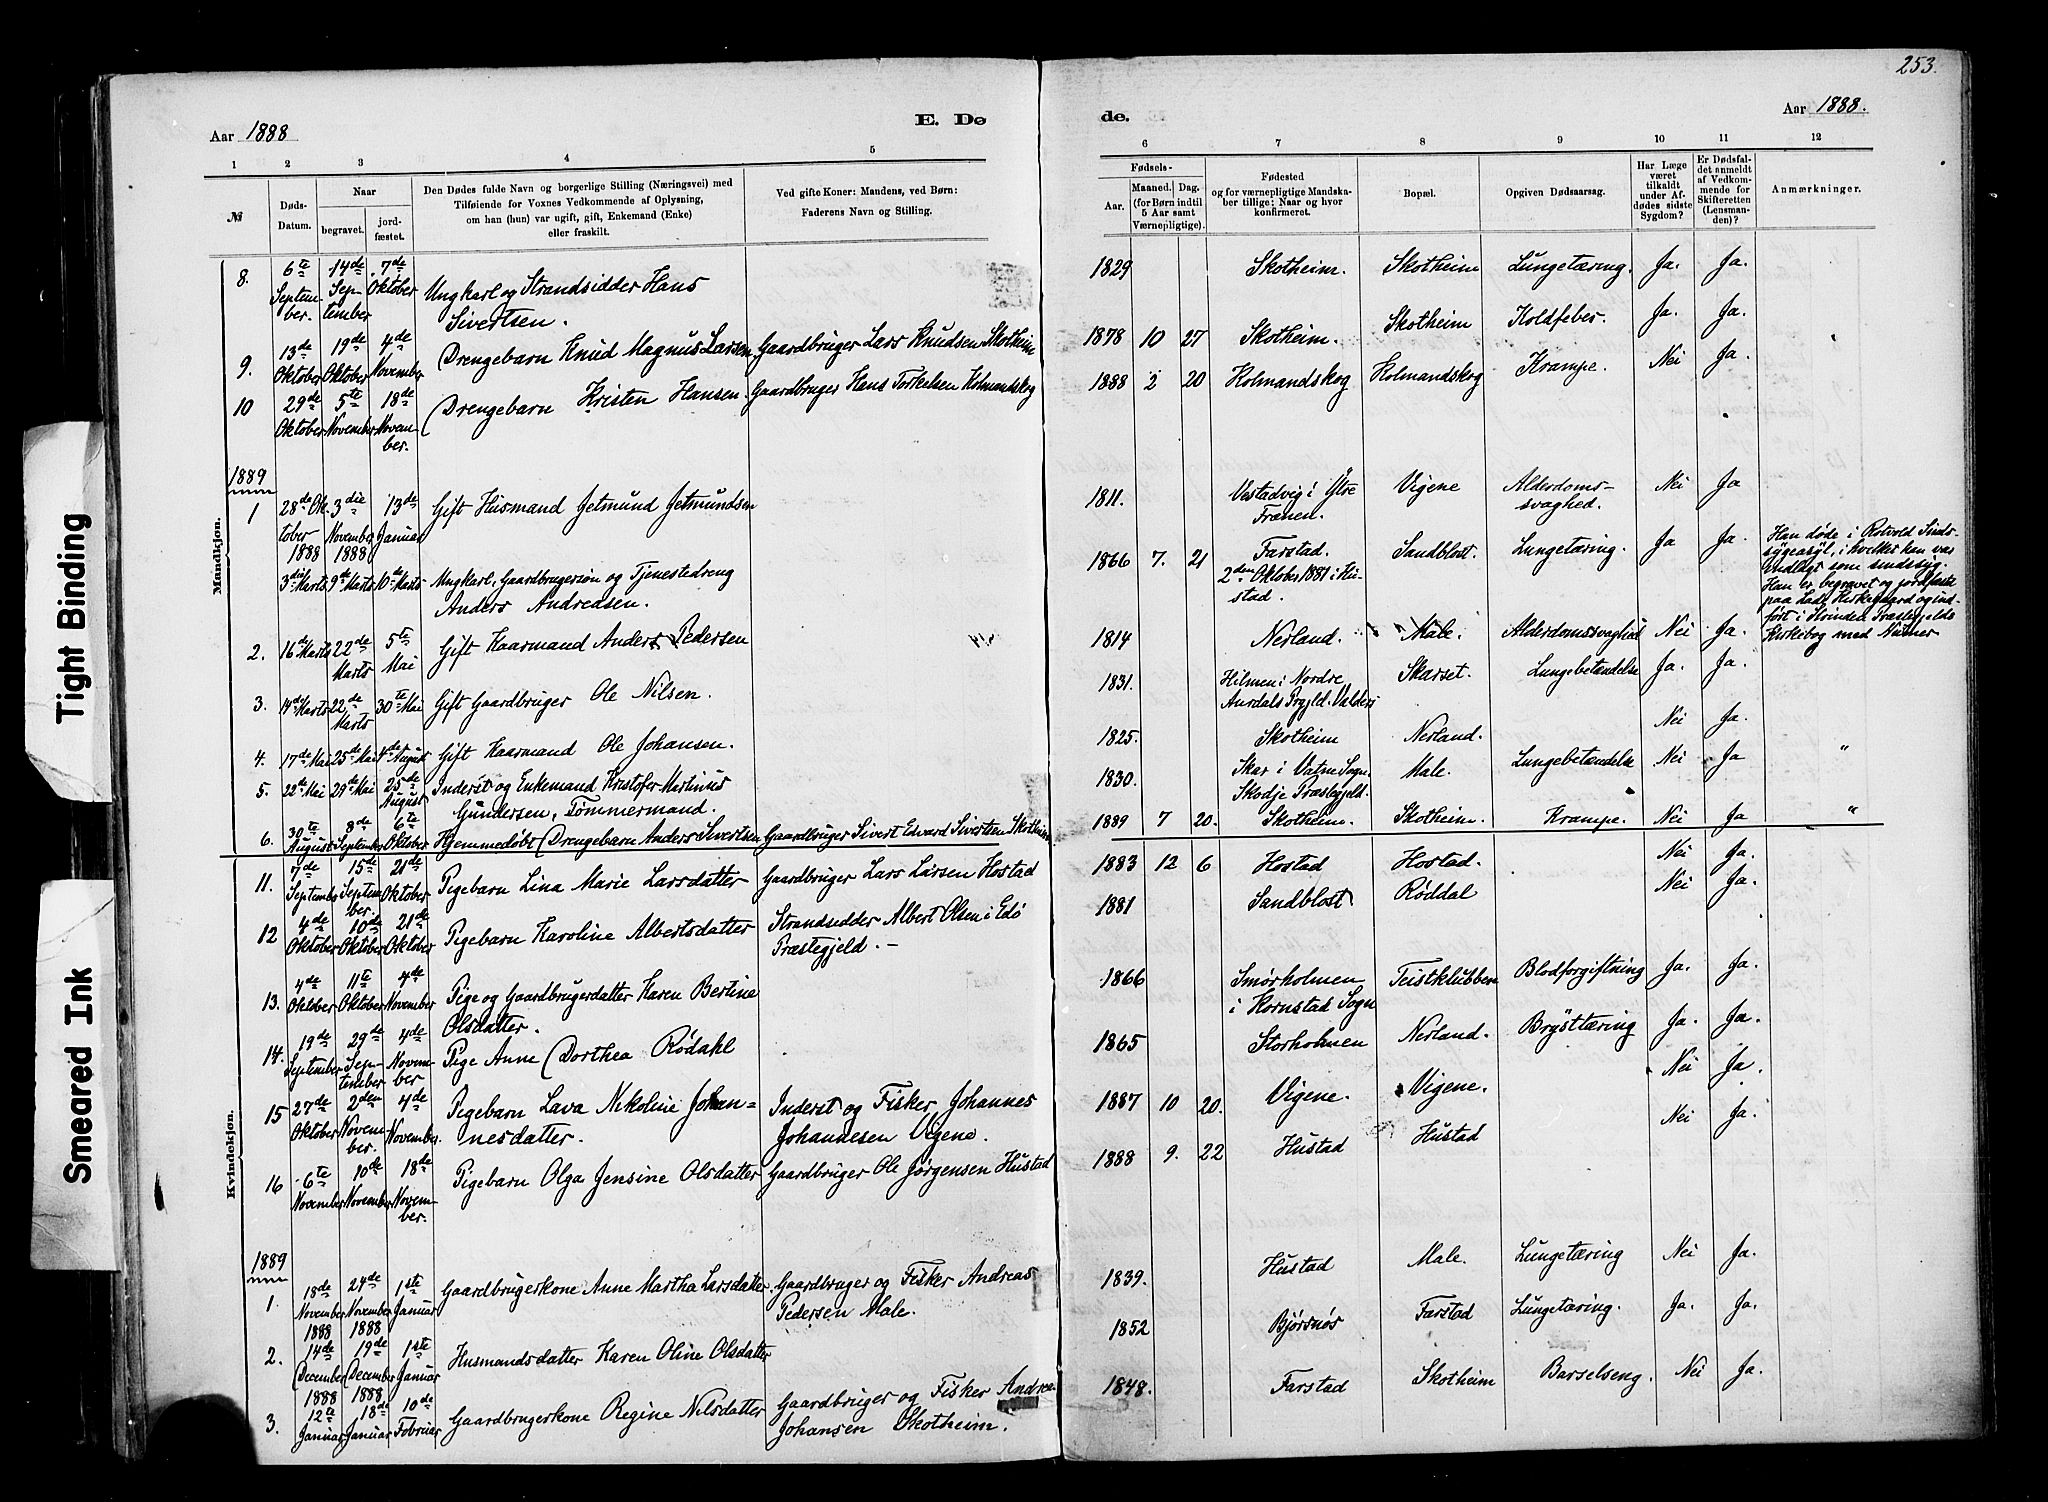 253.
Aar 1888
E. Dø
de.
Aar 1888.
1 2 3 4 5 6 7 8 9 10 11 12
№
Døds-
Datum.
Naar
begravet.
jord-
fæstet.
Den Dødes fulde Navn og borgerlige Stilling (Næringsvei) med
Tilføiende for Voxnes Vedkommende af Oplysning,
om han (hun) var ugift, gift, Enkemand (Enke)
eller fraskilt.
Ved gifte Koner: Mandens, ved Børn:
Faderens Navn og Stilling.
Fødsels-
Aar.
Maaned.
Dag.
(for Børn indtil
5 Aar samt
Værnepligtige).
Fødested
og for værnepligtige Mandska-
ber tillige: Naar og hvor
konfirmeret.
Bopæl.
Opgiven Dødsaarsag.
Har Læge
været
tilkaldt
under Af-
dødes sidste
Sygdom?
Er Dødsfal-
det anmeldt
af Vedkom-
mende for
Skifteretten
(Lensman-
den)?
Anmærkninger.
Mandkjøn.
8. 6te Septem-ber. 14de Sep-tember 7de Oktober Ungkarl og Strandsidder Hans
Sivertsen. 1829 Skotheim. Skotheim Lungetæring. Ja. Ja.
9. 13de Oktober 19de Oktober 4de November Drengebarn Knud Magnus Larsen Gaardbruger Lars Knudsen Skotheim 1878 10 27 Skotheim. Skotheim Koldfeber. Ja. Ja.
10 29de Oktober 5te November 18de Novem-ber. Drengebarn Kristen Hansen. Gaardbruger Hans Torkelsen Kolmandskog 1888 2 20 Kolmandskog Kolmandskog Krampe. Nei Ja.
1889
1 28de Ok-tober 1888 3die November 1888 13de Januar Gift Husmand Jetmund Jetmundsen 1811. Vestadvig i Ytre
Frænen. Vigene Alderdoms-
svaghed. Nei Ja
3die Marts 9de Marts 10de Marts Ungkarl, Gaardbrugersøn og Tjenestedreng
Anders Andreasen. 1866 7. 21 Farstad.
2den Oktober 1881 i Hu-
stad. Sandblost. Lungetæring. Ja Ja.
Han døde i Rotvold Sinds-
sygeasyl, i hvilket han var
indlagt som sindssyg.
Han er begravet og jordfæstet
paa Lade Kirkegaard og ind-
ført i Strinden Præstegjelds
Kirkebog med Numer
2. 16de Marts 22de Marts 5te Mai Gift Kaarmand Anders Pedersen 1814 Nerland. Male. Alderdomssvaghed Nei Ja.
3. 14de Marts 22de Marts 30te Mai Gift Gaardbruger Ole Nilsen. 1831. Hilmen i Nordre
Aurdals Prgjld. Valders Skarset. Lungebetændelse Ja. Ja.
4. 17de Mai 25de Mai 4de August Gift Kaarmand Ole Johansen. 1825. Skotheim Nerland. Nei Ja.
5. 22de Mai 29de Mai 25de August Inderst og Enkemand Kristofer Martinus
Gundersen, Tømmermand. 1830. Skar i Vatne Sogn
Skodje Præstegjeld. Male. Lungebetændelse Nei Ja "
6. 30te August 8de September 6te Oktober Hjemmedøbt Drengebarn Anders Sivertsen Gaardbruger Sivert Edvard Sivertsen Skotheim 1889 7 20. Skotheim. Skotheim. Krampe. Nei Ja "
Kvindekjøn.
11. 7de September 15de Septem-ber. 21de Oktober Pigebarn Lina Marie Larsdatter Gaardbruger Lars Larsen Hostad 1883 12 6 Hostad Hostad. Nei Ja.
12 4de Oktober 10de Oktober 21de Oktober Pigebarn Karoline Albertsdatter Strandsidder Albert Olsen i Edø
Præstegjeld. 1881 Sandblost. Røddal Nei Ja.
13. 4de Oktober 11te Oktober 4de November Pige og Gaardbrugerdatter Karen Bertine
Olsdatter. 1866 Smørholmen
i Kornstad Sogn Teistklubben Blodforgiftning Ja. Ja.
14. 19de September 29de Sep-tember 4de Novem-ber Pige Anne Dorthea Rødahl 1865 Storholmen Nerland. Brysttæring Ja. Ja.
15 27de Oktober 2den Novem-ber. 4de November. Pigebarn Lava Nikoline Johan-
nesdatter. Inderst og Fisker Johannes
Johannesen Vigene. 1887 10 20. Vigene. Vigene. Nei Ja.
16 6te November 10de November 18de Novem-ber. Pigebarn Olga Jensine Olsdatter Gaardbruger Ole Jørgensen Hustad 1888 9. 22 Hustad Hustad Nei Ja.
1889
1. 18de November 1888 24de November 1888 1ste Januar Gaardbrugerkone Anne Martha Larsdatter Gaardbruger og Fisker Andreas
Pedersen Male. 1839. Hustad Male. Lungetæring Nei Ja.
2. 14de December 1888 19de December 1888 1ste Januar Husmandsdatter Karen Oline Olsdatter 1852 Bjørsnøs Farstad Lungetæring. Ja. Ja.
3. 12te Januar 18de Januar 10de Februar Gaardbrugerkone Regine Nilsdatter Gaardbruger og Fisker Andrea
Johansen Skotheim. 1848. Farstad Skotheim Barselseng. Nei Ja.
Tight Binding
Smeared Ink